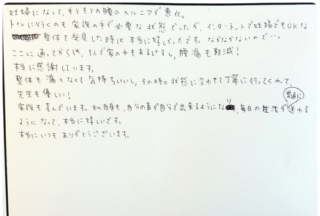 妊婦になって、もともとの腰のヘルニアが悪化。
トイレに行くのも家族の手が必要な状態でしたが、インターネットで妊婦でもOKな
整体を発見した時は本当に嬉しかったです。
ここに通ってからは、1人で家の中も歩けるし、腰痛も軽減!
本当に感謝しています。
整体も痛くなくて気持ちいいし、その時の状態に合わせて丁寧に行ってくれて
先生も優しい!
家族も喜んでいます。私自身も、自分の事が自分で出来るようになり、毎日の生活が送れる
ようになって、本当に嬉しいです。
本当にいつもありがとうございます。